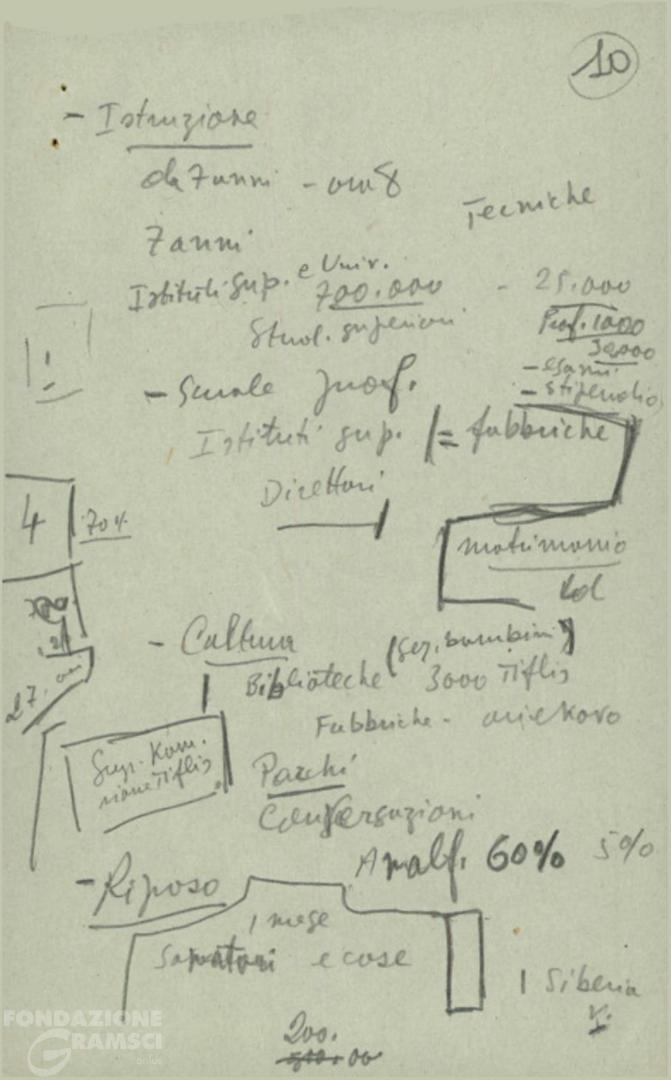 10
- Istruzione
da 7 anni - ora 8
Tecniche
7 anni
Istituti sup. e Univ.
700.000 - 25.000
Stud. superiori
Prof. 1000
30000
- esami
- stipendio
- Scuole prof.
Istituti sup. = fabbriche
Direttori
4 70%
matrimonio
- Cultura
(sez. bambini)
Biblioteche 3000 Tiflis
27.
Fabbriche -
Tiflis
Parchi
Conversazioni
Analf. 60% 5%
- Riposo
1 mese
Sanatori e case
1 Siberia
200.
FONDAZIONE
GRAMSCI